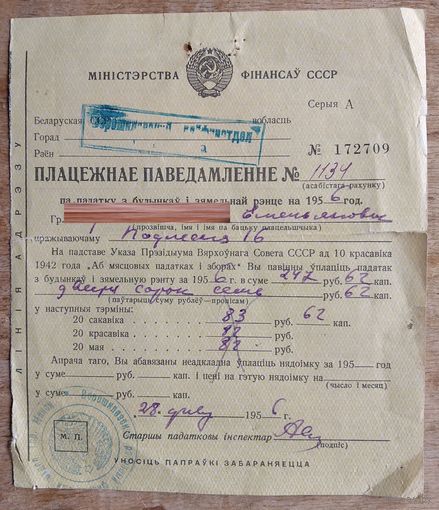 МІНІСТЭРСТВА ФІНАНСАЎ СССР
Серыя А
Беларуская ССР вобласць
Горад
Раён № 172709
ПЛАЦЕЖНАЕ ПАВЕДАМЛЕННЕ № 1134
(асабістага рахунку)
па падатку з будынкаў і зямельнай рэнце на 1956 год.
Гр.
(прозвішча, імя і імя па бацьку плацельшчыка)
пражываючаму 16
На падставе Указа Прэзідыума Вярхоўнага Совета СССР ад 10 красавіка
1942 года „Аб мясцовых падатках і зборах" Вы павінны ўплаціць падатак
з будынкаў і зямельную рэнту за 1956 г. у суме 247 руб. 62 кап.
двести сорок семь руб. 62 кап.
(паўтарыць суму рублёў—пропісам)
у наступныя тэрміны:
20 сакавіка 83 руб. 62 кап.
20 красавіка 82
20 мая 82
Апрача таго, Вы абавязаны неадкладна ўплаціць нядоімку за 195 год
у суме руб. кап. і пені на гэтую нядоімку на
(число і месяц)
у суме руб. кап.
28 1956 г.
М. П.
Старшы падатковы інспектар
(подпіс)
УНОСІЦЬ ПАПРАЎКІ ЗАБАРАНЯЕЦЦА
ЛІНІЯ АДРЭЗУ